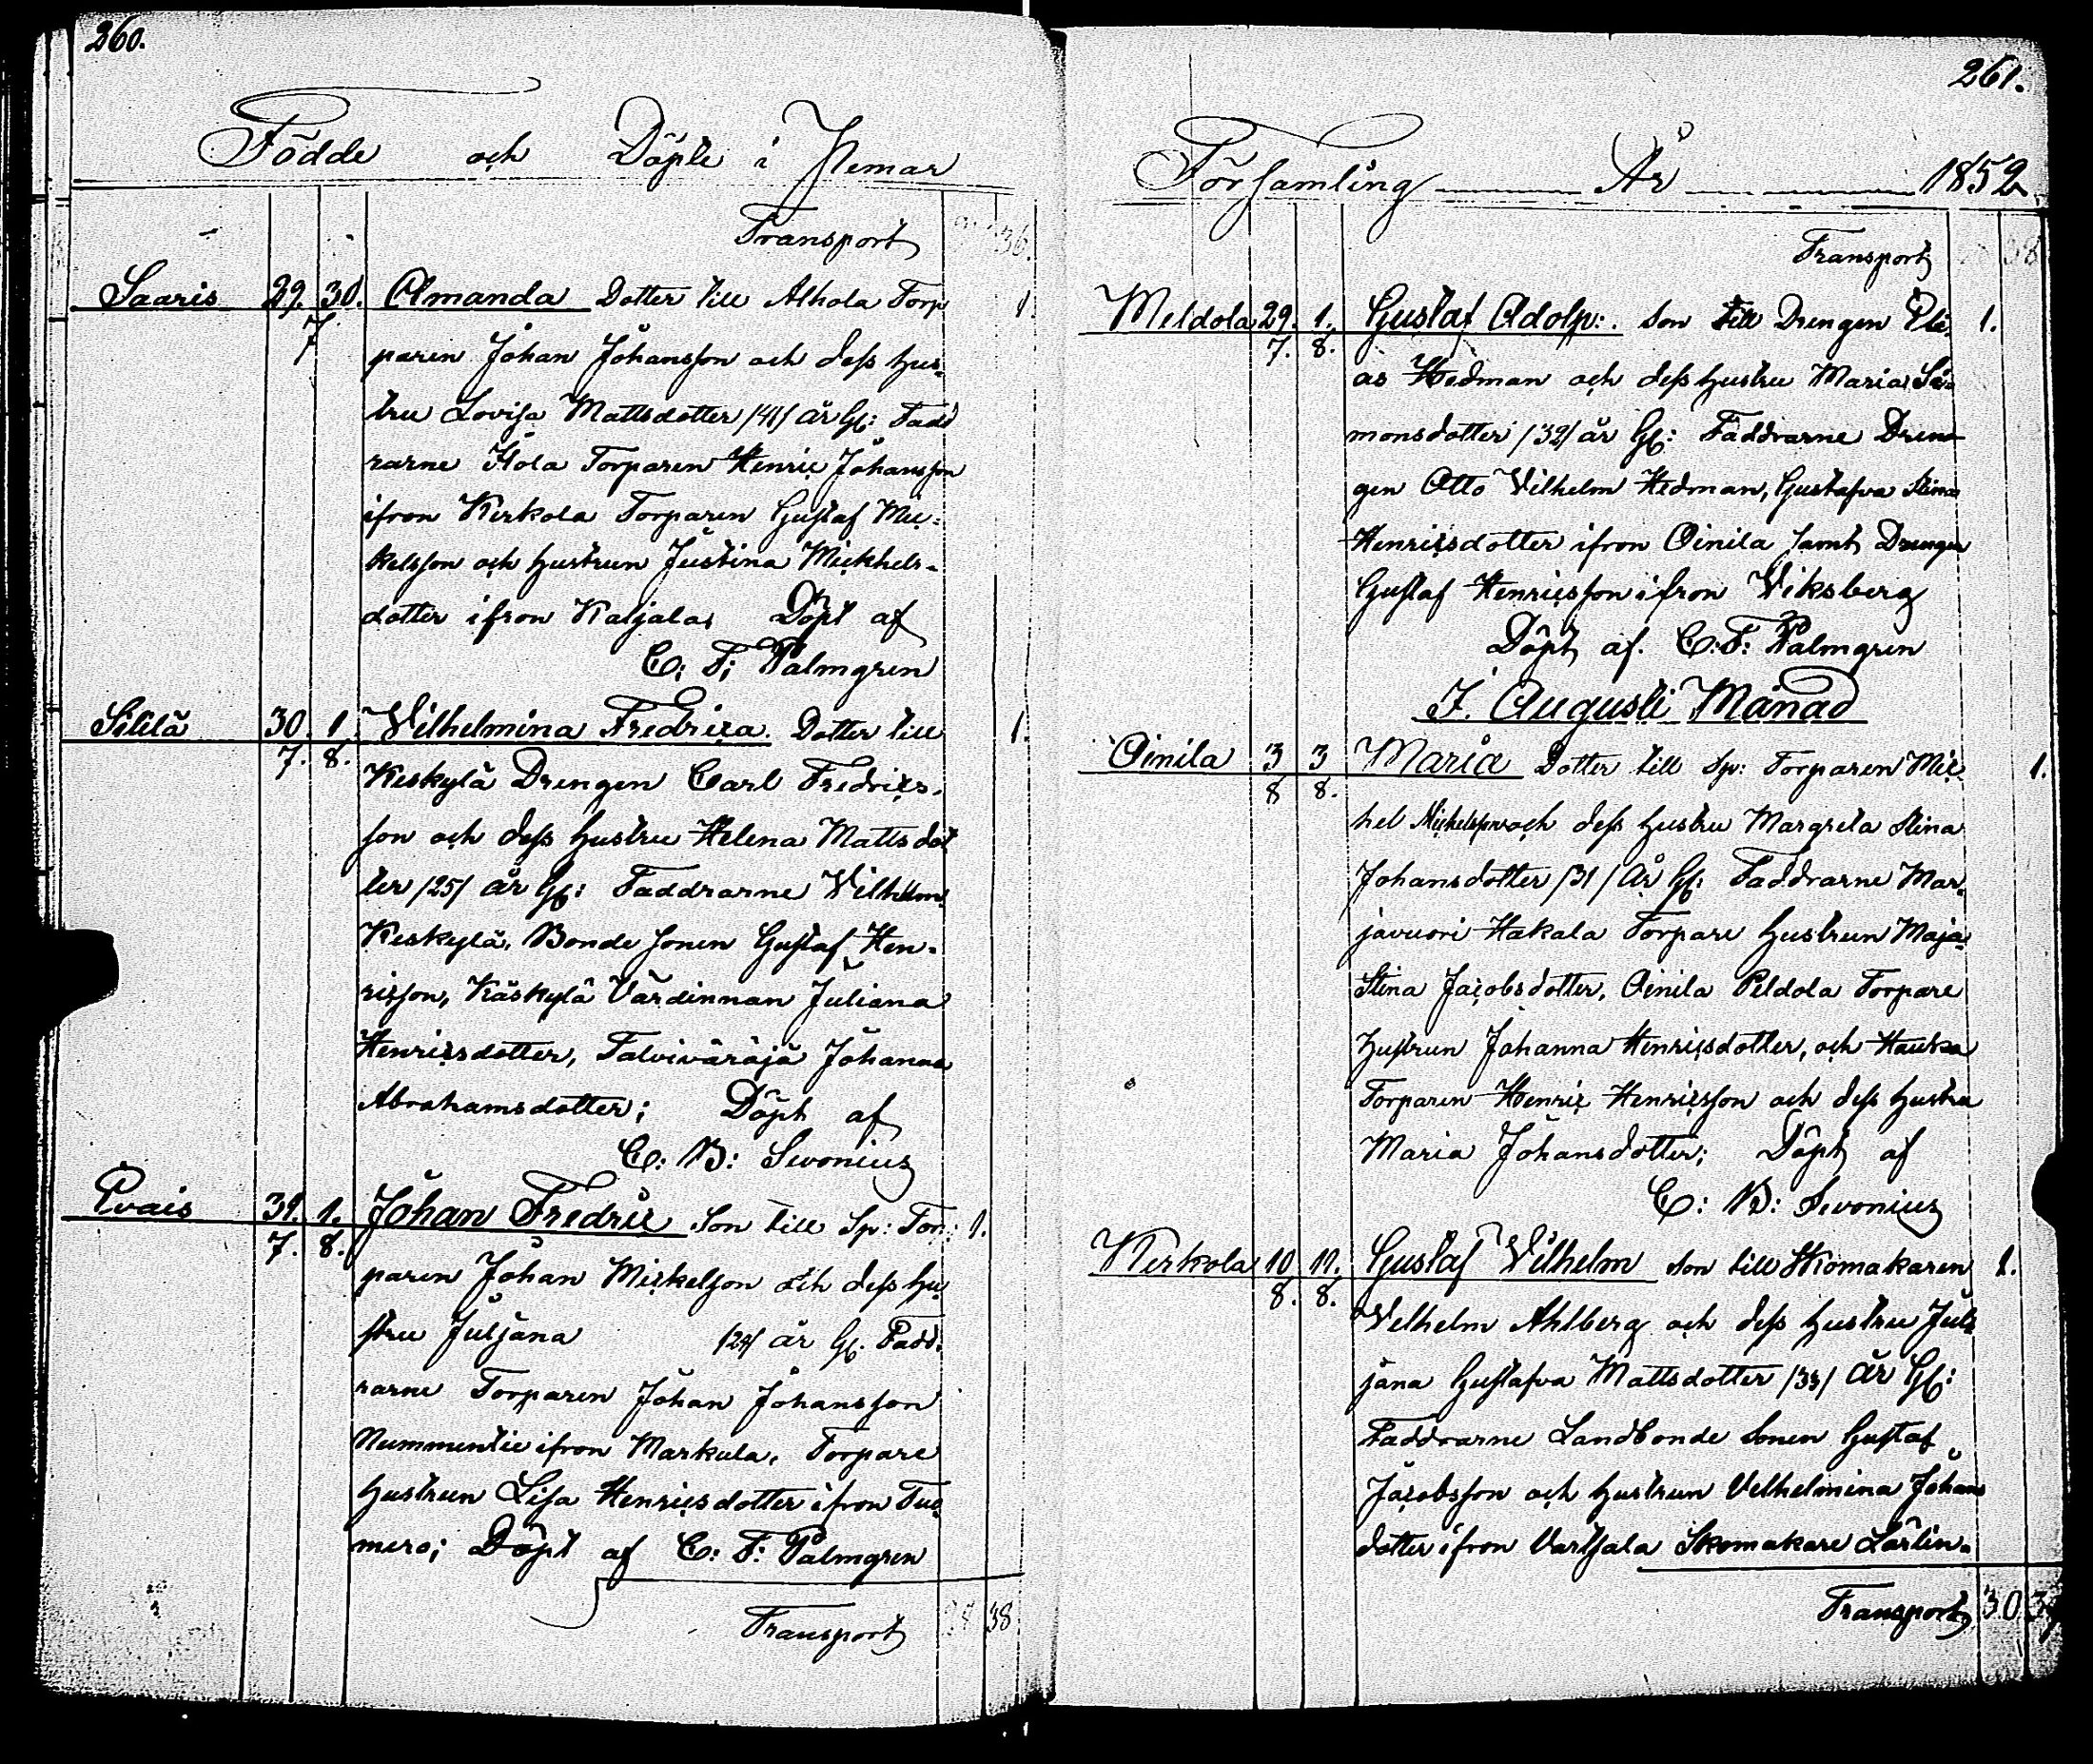 260.
Födde och Döpte i Hemar
Transport 36.
Saaris 29. 30. Amanda Dotter till Alhola Torp 1.
7
paren Johan Johansson och dess hus-
tru Lovisa Mattsdotter /41/ år Gl: Fadd
rarne Torparen Henric Johansson
ifron Kerkola Torparen Gustaf Mic-
kelsson och hustrun Justina Mickhels-
dotter ifron Kaljala, Döpt af
C: F: Palmgren
30. 1. Wilhelmina Fredrica. Dotter till 1.
7. 8.
Keskylä Drengen Carl Fredrics-
son och dess hustru Helena Mattsdot
ter /25/ år Gl: Faddrarne Vilhelm
Keskylä, Bonde sonen Gustaf Hen-
ricsson, Käskylä Värdinnan Juliana
Henricsdotter, Talviväräjä Johanna
Abrahamsdotter; Döpt af
C: B: Sevonius
Pvais 31. 1. Johan Fredric Son till Sp: Tor: 1.
7. 8.
paren Johan Mickelson och dess hu
stru Juljana /24/ år Gl. Fadd.
rarne Torparen Johan Johansson
Nummentie ifron Markula, Torpare
hustrun Lisa Henricsdotter ifron Tuo
mero; Döpt af C: F: Palmgren
Transport 28 38
261.
Församling År 1852
Transport 38
Meldola 29. 1. Gustaf Adolp:. Son till Drengen Eli 1.
7. 8.
as Hedman och dess hustru Maria Si-
monsdotter /32/ år Gl: Faddrarne Dren-
gen Otto Vilhelm Hedman, Gustafva Stina
Henricsdotter ifron Oinila samt Drengen
Gustaf Henricsson ifron Wiksberg
Döpt af. C: F: Palmgren
I. Augusti Månad
Oinila 3 3 Maria Dotter till Sp: Torparen Mic 1.
8 8.
hel Mickelsson och dess hustru Margreta Stina
Johansdotter /31/ år Gl: Faddrarne Mar-
javuori Hakala Torpare hustrun Maja
Stina Jacobsdotter, Oinila Peldola Torpare
hustrun Johanna Henricsdotter, och Hauka
Torparen Henric Henricsson och dess hustru
Maria Johansdotter; Döpt af
C: B: Sevonius
Kerkola 10 11. Gustaf Wilhelm Son till Skomakaren 1.
8. 8.
Velhelm Ahlberg och dess hustru Jul
jana Gustafva Mattsdotter /33/ år Gl:
Faddrarne Landbonde Sonen Gustaf
Jacobsson och hustrun Velhelmina Johans
dotter ifron Vartsala Skomakare Lärlin-
Transport 30 39